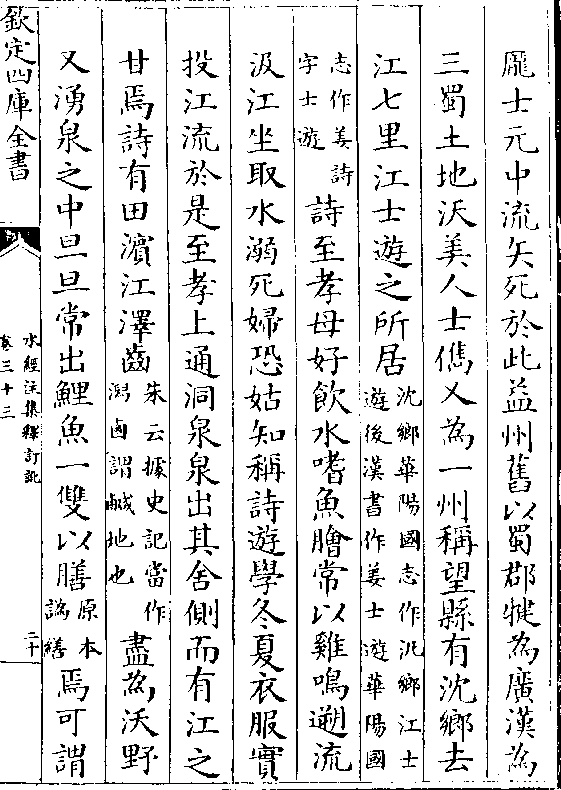 龎士元中流矢死於此益州舊以蜀郡犍為廣漢為
三蜀土地沃美人士儁乂為一州稱望縣有沈鄉去
江七里江士遊之所居沈鄉華陽國志作汎鄉江士遊後漢書作姜士遊華陽國
志作姜詩字士遊詩至孝母好飲水嗜魚膾常以雞鳴遡流
汲江坐取水溺死婦恐姑知稱詩遊學冬夏衣服實
投江流於是至孝上通洞泉泉出其舍側而有江之
甘焉詩有田濵江澤鹵朱云據史記當作潟鹵謂鹹地也盡為沃野
又湧泉之中旦旦常出鯉魚一雙以膳原本譌繕焉可謂
欽定四庫全書
水經注集釋訂訛
卷三十三
二十